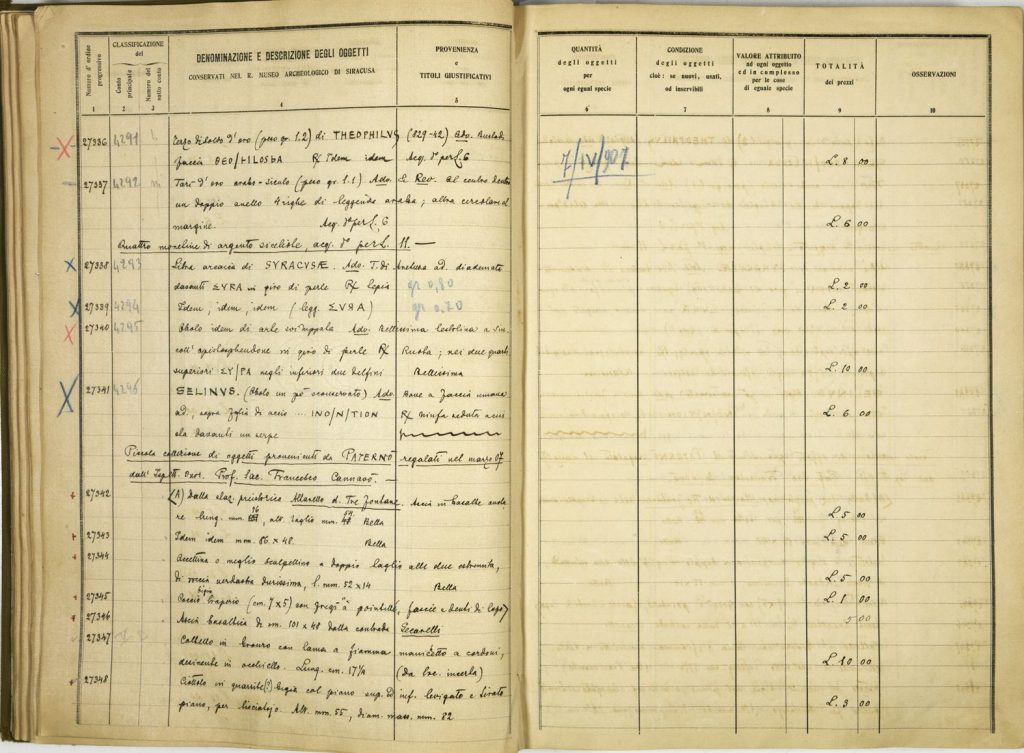 Numero d'ordine progressivo
CLASSIFICAZIONE del
Conto principale
Numero del sotto conto
DENOMINAZIONE E DESCRIZIONE DEGLI OGGETTI
CONSERVATI NEL R. MUSEO ARCHEOLOGICO DI SIRACUSA
PROVENIENZA
e
TITOLI GIUSTIFICATIVI
1 2 3 4 5
27336 4291 d'oro (peso gr. 1.2) di THEOPHILVS (829-42) Adv. 
faccia ΘEO/HILOSBA R/ Idem idem Acq. per L. 6
27337 4292 Tarì d'oro arabo-siculo (peso gr. 1.1) Adv. E Rev. Al centro dentro
un doppio anello 4 righe di leggenda araba; altra circolare al
margine. Acq. per L. 6
Quattro monetine di argento siceliote, acq. per L. 11. —
27338 4293 Litra arcaica di SYRACUSÆ. Adv. T. di Aretusa ad. diademata
davanti ΣVRA in giro di perle R/ Sepia gr 0,80
27339 4294 Idem, idem, idem (legg. ΣVRA) gr 0.70
27340 4295 Obolo idem di arte sviluppata Adv. Bellissima testolina a sin.
coll' opisthosphendone in giro di perle R/ Ruota; nei due quarti
superiori ΣY/PA negli inferiori due delfini Bellissima
27341 4296 SELINVS. (Obolo un pò sconservato) Adv. Bove a faccia umana
ad., sopra ... INO/N/TION R/ Ninfa seduta a sini
stra davanti un serpe
Piccola collezione di oggetti provenienti da PATERNÒ regalati nel marzo 07
dall' Ispett. Onor. Prof. Sac. Francesco Cannavò. —
27342 (A) Dalla staz. preistorica Altarello d. Tre Fontane. Ascia in basalte
lung. mm. 76, alt. taglio mm. Bella
27343 Idem idem mm. 86 x 48. Bella
27344 Accettina o meglio scalpellino a doppio taglio alle due estremità,
di roccia verdastra durissima, l. mm. 52 x 14 Bella
27345 (cm. 7 x 5) con fregi a
27346 Ascia basaltica di m. 101 x 48 dalla contrada
27347 Coltello in bronzo con lama a fiamma
desinente in occhiello. Lung. cm. 17 (Da loc. incerta)
27348 Ciottolo in quarzite(?) bigia col piano sup. ed inf. levigato e
piano, per lisciatojo. Alt. mm. 55, diam. mass. mm. 82
QUANTITÀ
degli oggetti
per
ogni egual specie
CONDIZIONE
degli oggetti
cioè: se nuovi, usati,
od inservibili
VALORE ATTRIBUITO
ad ogni oggetto
ed in complesso
per le cose
di eguale specie
TOTALITÀ
dei prezzi
OSSERVAZIONI
6 7 8 9 10
7/IV/907
L. 8 00
L. 6 00
L. 2 00
L. 2 00
L. 10 00
L. 6 00
L. 5 00
L. 5 00
L. 5 00
L. 1 00
5 00
L. 10 00
L. 3 00